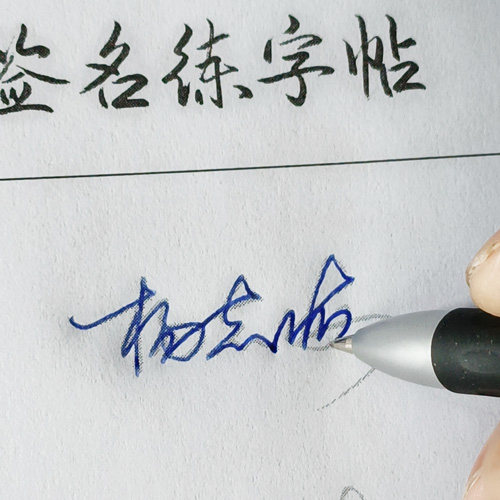 签名练字帖
杨志